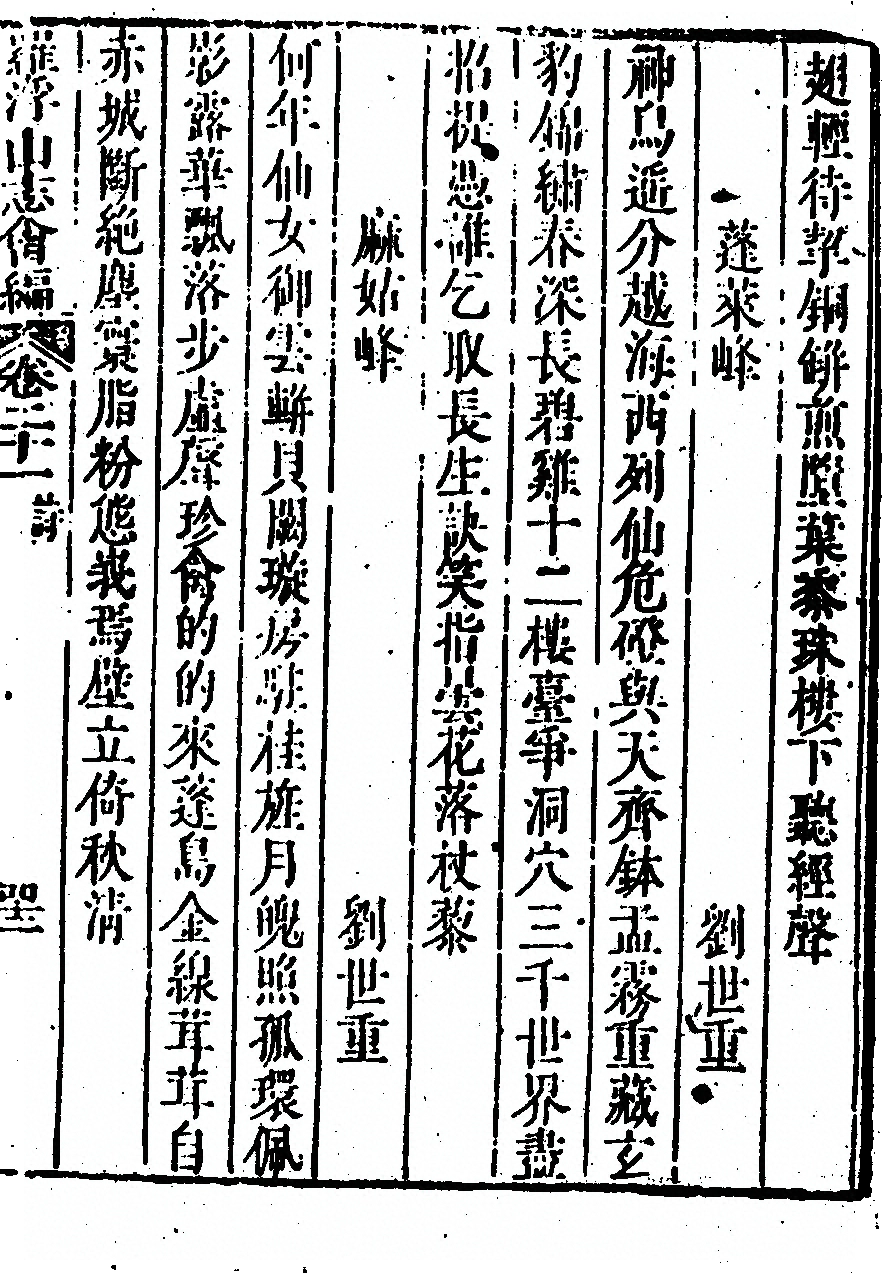 翅輕待挈銅缾煎墮葉黍珠樓下聽經聲
蓬萊峰　劉世重
神鳥遥分越海西列仙危磴與天齊鉢盂霧重藏玄
豹錦繡春深長碧雞十二樓臺爭洞穴三千世界盡
招提憑誰乞取長生訣笑指曇花落杖藜
麻姑峰　劉世重
何年仙女御雲軿貝闕璇房駐桂旌月魄照孤環佩
影露華飄落步虛聲珍禽的的來蓬島金線茸茸自
赤城斷絶塵寰脂粉態峩焉壁立倚秋清
羅浮山志會編　卷二十一　詩